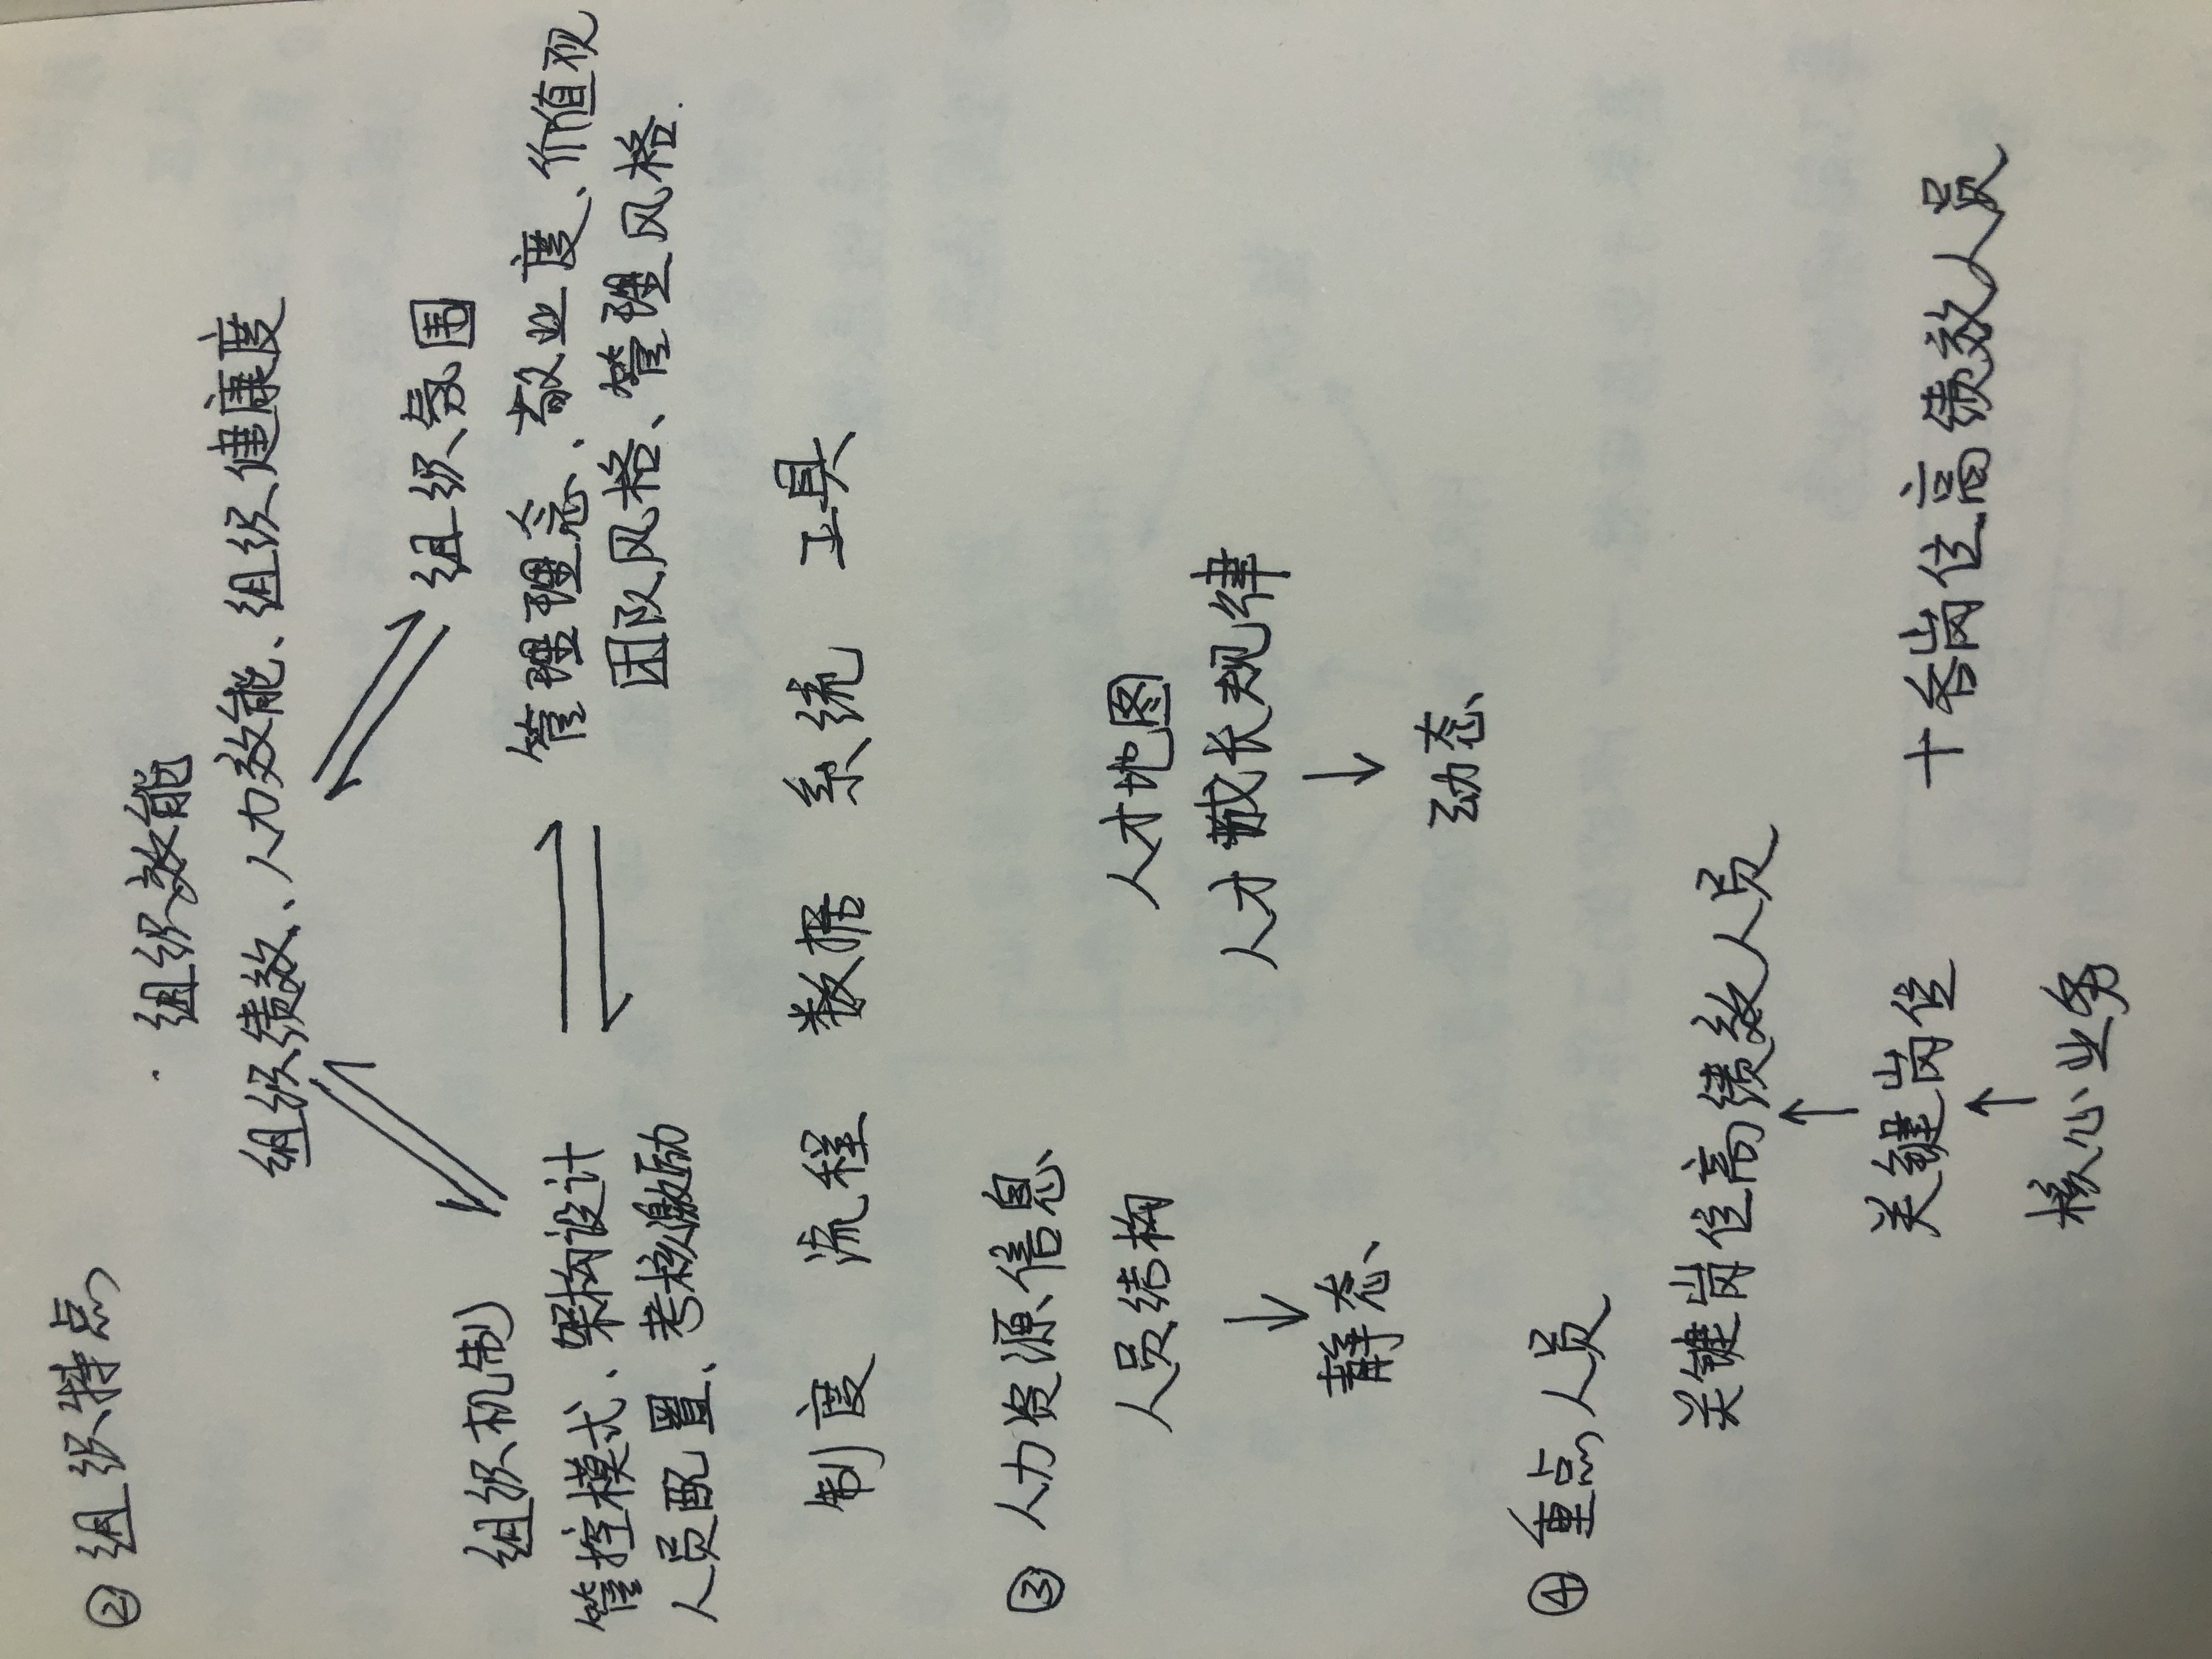 ② 组织特点
组织效能
组织绩效、人力效能、组织健康度
组织机制
组织氛围
管控模式、架构设计
人员配置、考核激励
管理理念、敬业度、价值观
团队风格、管理风格.
制度 流程 数据 系统 工具
③ 人力资源信息
人员结构
人才地图
人才成长规律
↓ ↓
静态 动态
④ 重点人员
关键岗位高绩效人员
↑
关键岗位 十各岗位高绩效人员
↑
核心业务